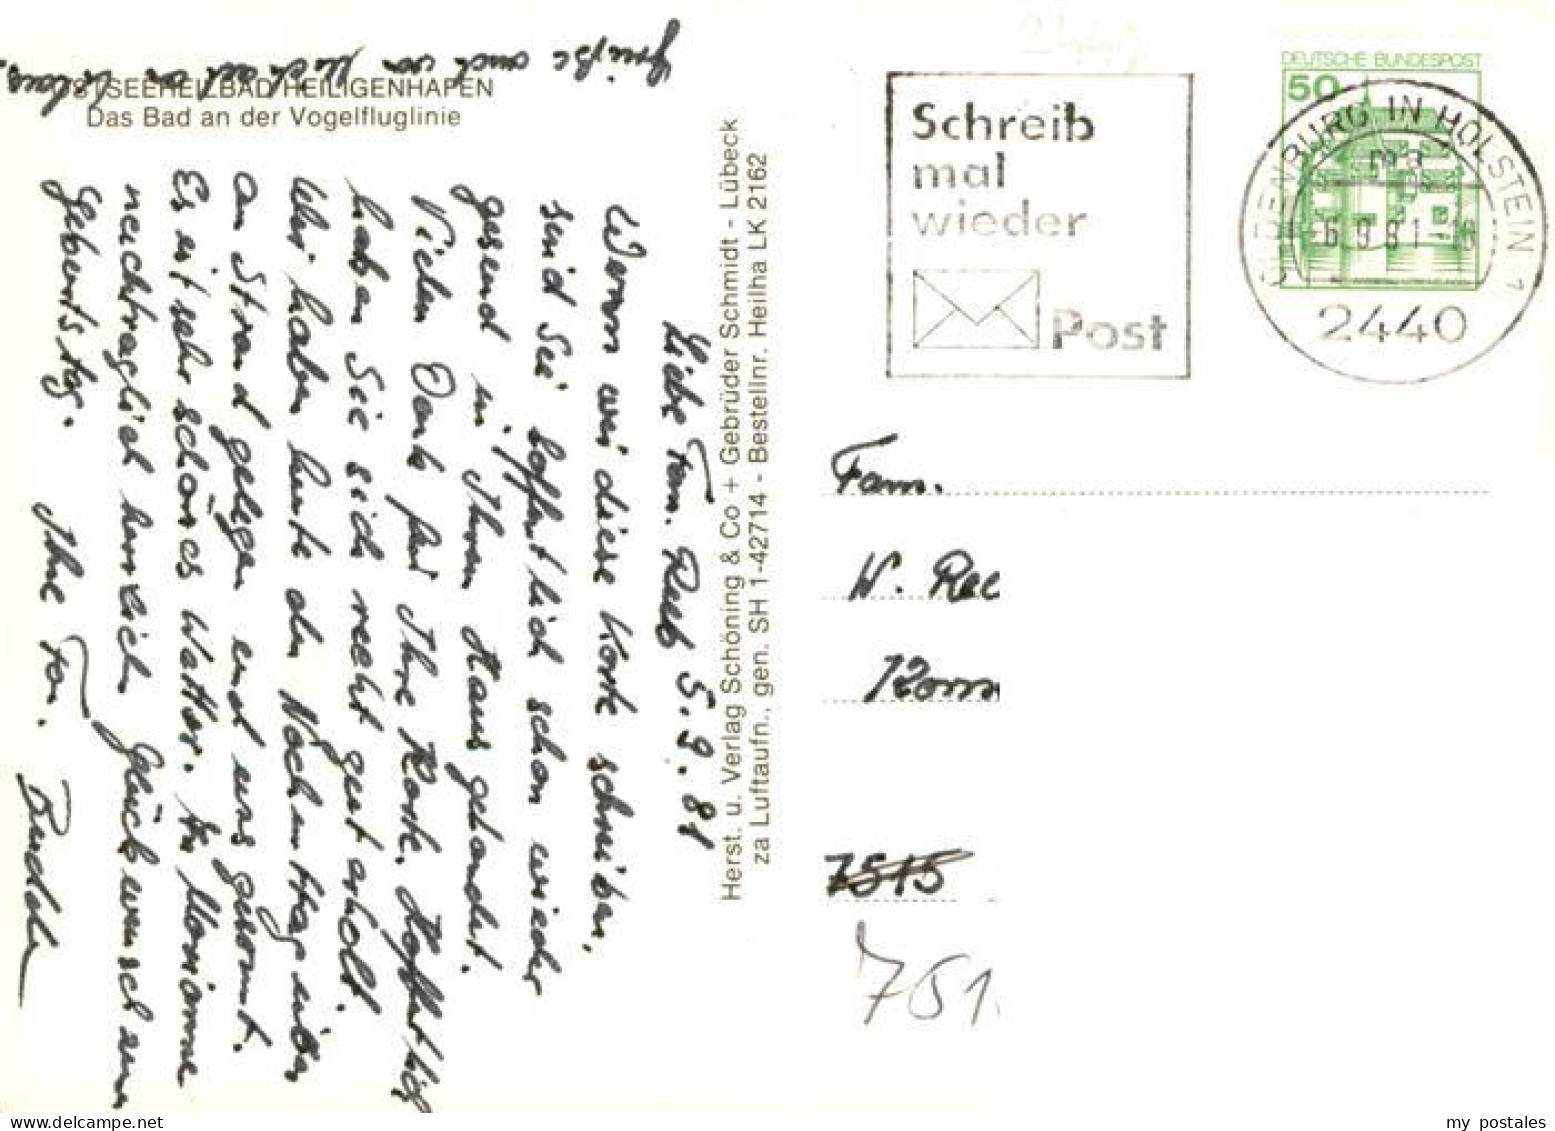 OSTSEEHEILBAD HEILIGENHAFEN
Das Bad an der Vogelfluglinie
Grüße auch von
Liebe Fam. Reeb 5.9.81
Wenn wir diese Karte schreiben,
sind Sie hoffentlich schon wieder
gesund in Ihrem Haus gelandet.
Vielen Dank für Ihre Karte. Hoffentlich
haben Sie sich recht gut erholt.
Wir haben heute den Nachmittag
am Strand gelegen und uns gesonnt.
Es ist sehr schönes Wetter.
nachträglich herzlichen Glückwunsch zum
Geburtstag. Ihre Fam.
Herst. u. Verlag Schöning & Co + Gebrüder Schmidt - Lübeck
za Luftaufn., gen. SH 1-42714 - Bestellnr. Heilha LK 2162
2440
Schreib
mal
wieder
Post
DEUTSCHE BUNDESPOST
50
OLDENBURG IN HOLSTEIN 1
ma
-6.9.81-18
2440
Fam.
W. Ree
7515
751
my postales